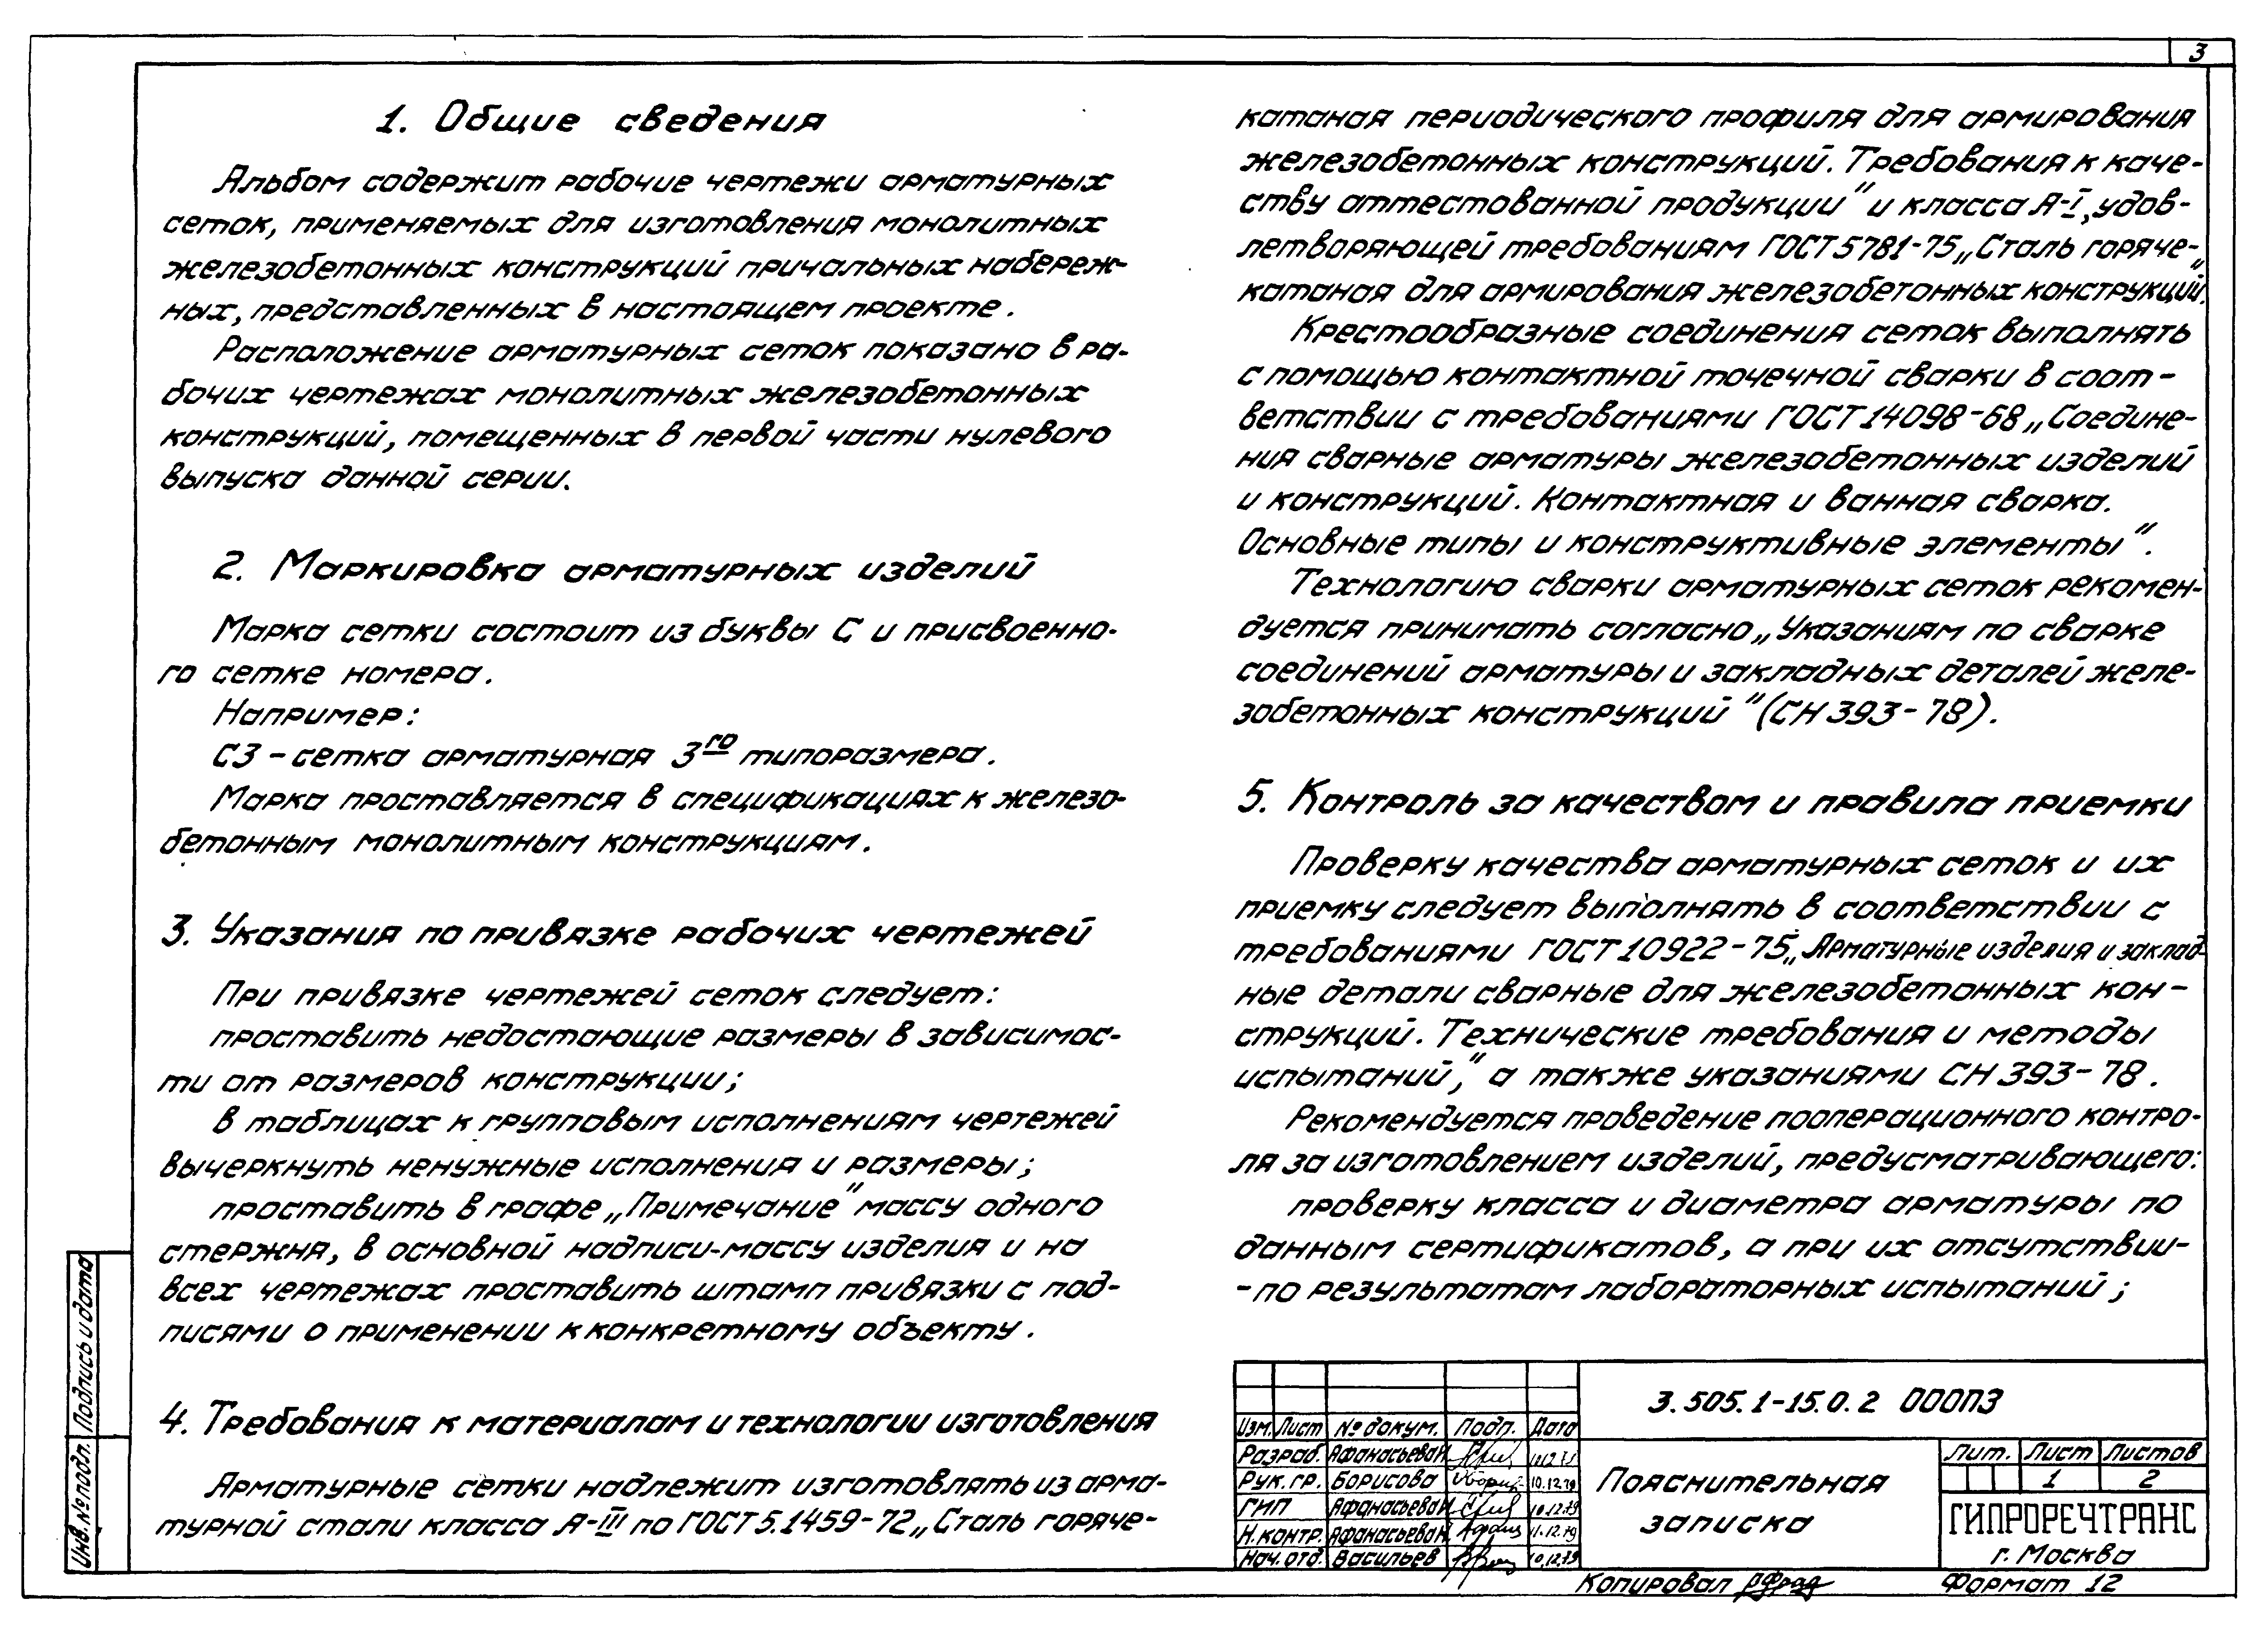 3
1. Общие сведения
Альбом содержит рабочие чертежи арматурных
сеток, применяемых для изготовления монолитных
железобетонных конструкций причальных набереж-
ных, представленных в настоящем проекте.
Расположение арматурных сеток показано в ра-
бочих чертежах монолитных железобетонных
конструкций, помещенных в первой части нулевого
выпуска данной серии.
2. Маркировка арматурных изделий
Марка сетки состоит из буквы С и присвоенно-
го сетке номера.
Например:
С3 – сетка арматурная 3го типоразмера.
Марка проставляется в спецификациях к железо-
бетонным монолитным конструкциям.
3. Указания по привязке рабочих чертежей
При привязке чертежей сеток следует:
проставить недостающие размеры в зависимос-
ти от размеров конструкции;
в таблицах к групповым исполнениям чертежей
вычеркнуть ненужные исполнения и размеры;
проставить в графе „Примечание" массу одного
стержня, в основной надписи-массу изделия и на
всех чертежах проставить штамп привязки с под-
писями о применении к конкретному объекту.
4. Требования к материалам и технологии изготовления
Арматурные сетки надлежит изготовлять из арма-
турной стали класса А-III по ГОСТ 5.1459-72 „Сталь горяче-
катаная периодического профиля для армирования
железобетонных конструкций. Требования к каче-
ству аттестованной продукции" и класса А-I, удов-
летворяющей требованиям ГОСТ 5781-75 „Сталь горяче-
катаная для армирования железобетонных конструкций".
Крестообразные соединения сеток выполнять
с помощью контактной точечной сварки в соот-
ветствии с требованиями ГОСТ 14098-68 „Соедине-
ния сварные арматуры железобетонных изделий
и конструкций. Контактная и ванная сварка.
Основные типы и конструктивные элементы".
Технологию сварки арматурных сеток рекомен-
дуется принимать согласно „Указаниям по сварке
соединений арматуры и закладных деталей желе-
зобетонных конструкций" (СН 393-78).
5. Контроль за качеством и правила приемки
Проверку качества арматурных сеток и их
приемку следует выполнять в соответствии с
требованиями ГОСТ 10922-75 „Арматурные изделия и заклад-
ные детали сварные для железобетонных кон-
струкций. Технические требования и методы
испытаний," а также указаниями СН 393-78.
Рекомендуется проведение пооперационного контро-
ля за изготовлением изделий, предусматривающего:
проверку класса и диаметра арматуры по
данным сертификатов, а при их отсутствии-
-по результатам лабораторных испытаний;
3.505.1-15.0.2 000ПЗ
Изм. Лист № докум. Подп. Дата
Разраб. Афанасьева Н.
Рук. гр. Борисова 10.12.79
ГИП Афанасьева Н. 10.12.79
Н. контр. Афанасьева Н. 11.12.79
Нач. отд. Васильев 10.12.79
Пояснительная
записка
Лит. Лист Листов
1 2
ГИПРОРЕЧТРАНС
г. Москва
Копировал
Формат 12
Подпись и дата
Инв. № подл.